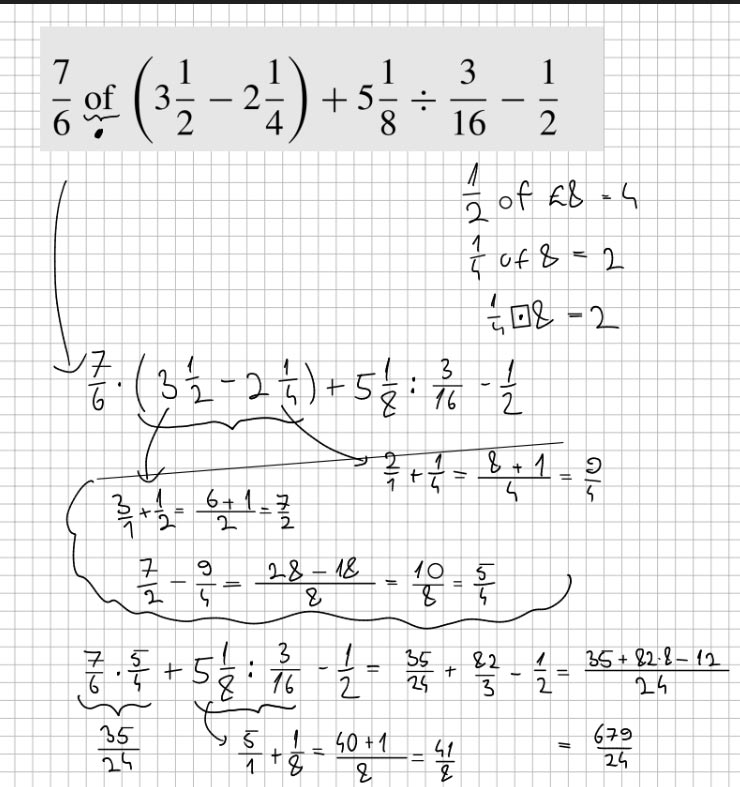 7/6 of (3 1/2 − 2 1/4) + 5 1/8 ÷ 3/16 − 1/2
1/2 of £8 = 4
1/4 of 8 = 2
1/4 · 8 = 2
7/6 · (3 1/2 − 2 1/4) + 5 1/8 : 3/16 − 1/2
2/1 + 1/4 = (8 + 1)/4 = 9/4
3/1 + 1/2 = (6 + 1)/2 = 7/2
7/2 − 9/4 = (28 − 18)/8 = 10/8 = 5/4
7/6 · 5/4 + 5 1/8 : 3/16 − 1/2 = 35/24 + 82/3 − 1/2 = (35 + 82·8 − 12)/24
35/24
5/1 + 1/8 = (40 + 1)/8 = 41/8
= 679/24